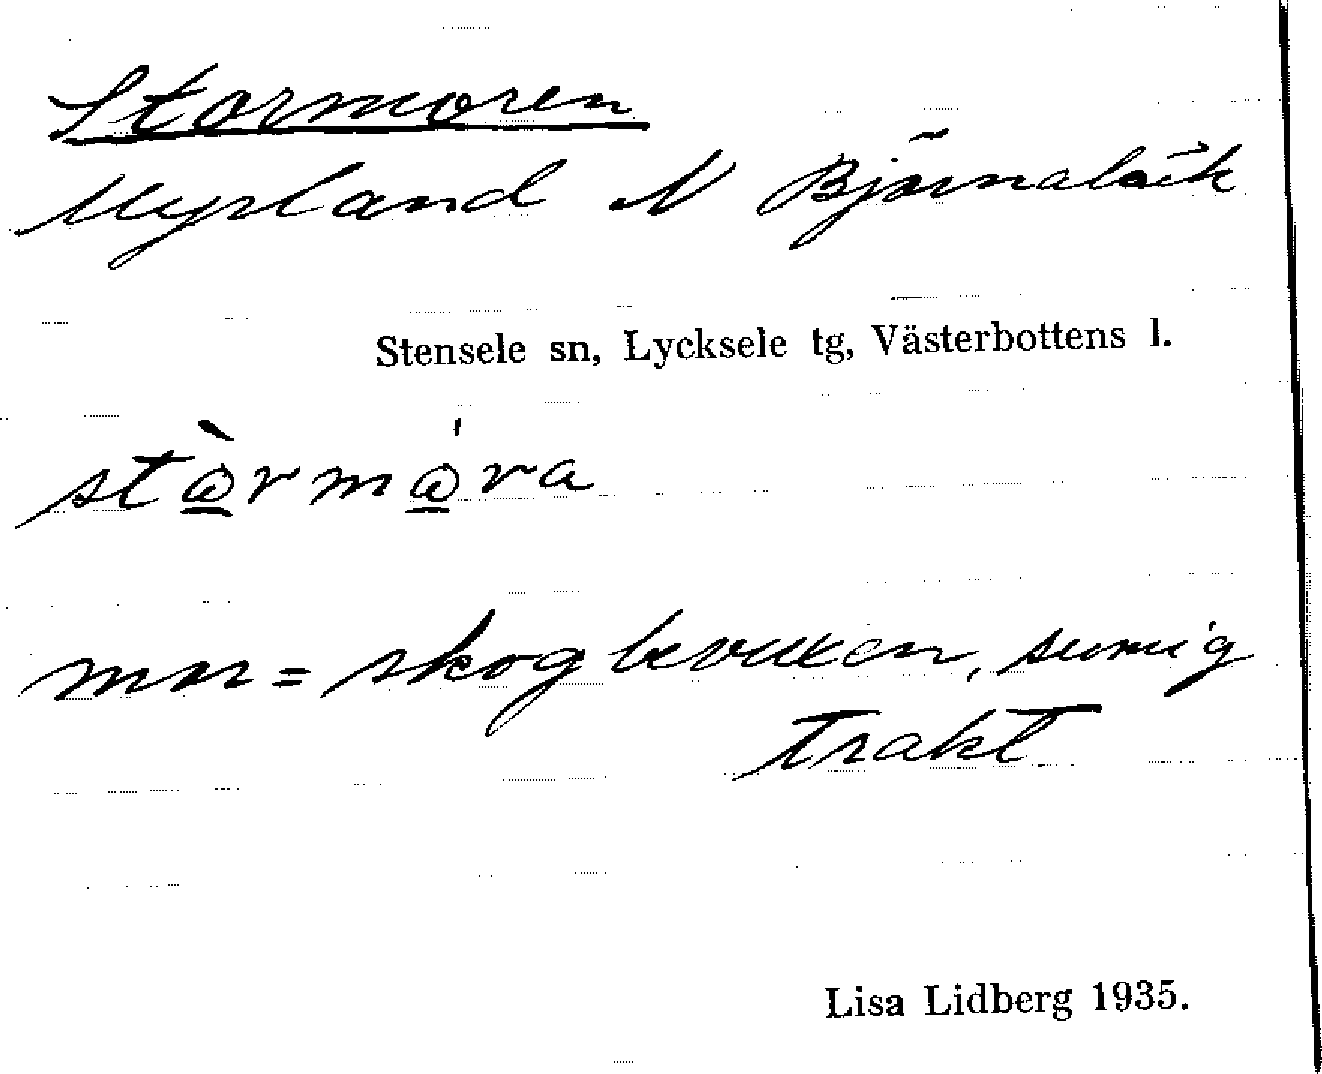 Stormoren
Nyland N Björnabäck
Stensele sn, Lycksele tg, Västerbottens l.
mm = skogbevuxen, sumig
trakt
Lisa Lidberg 1935.